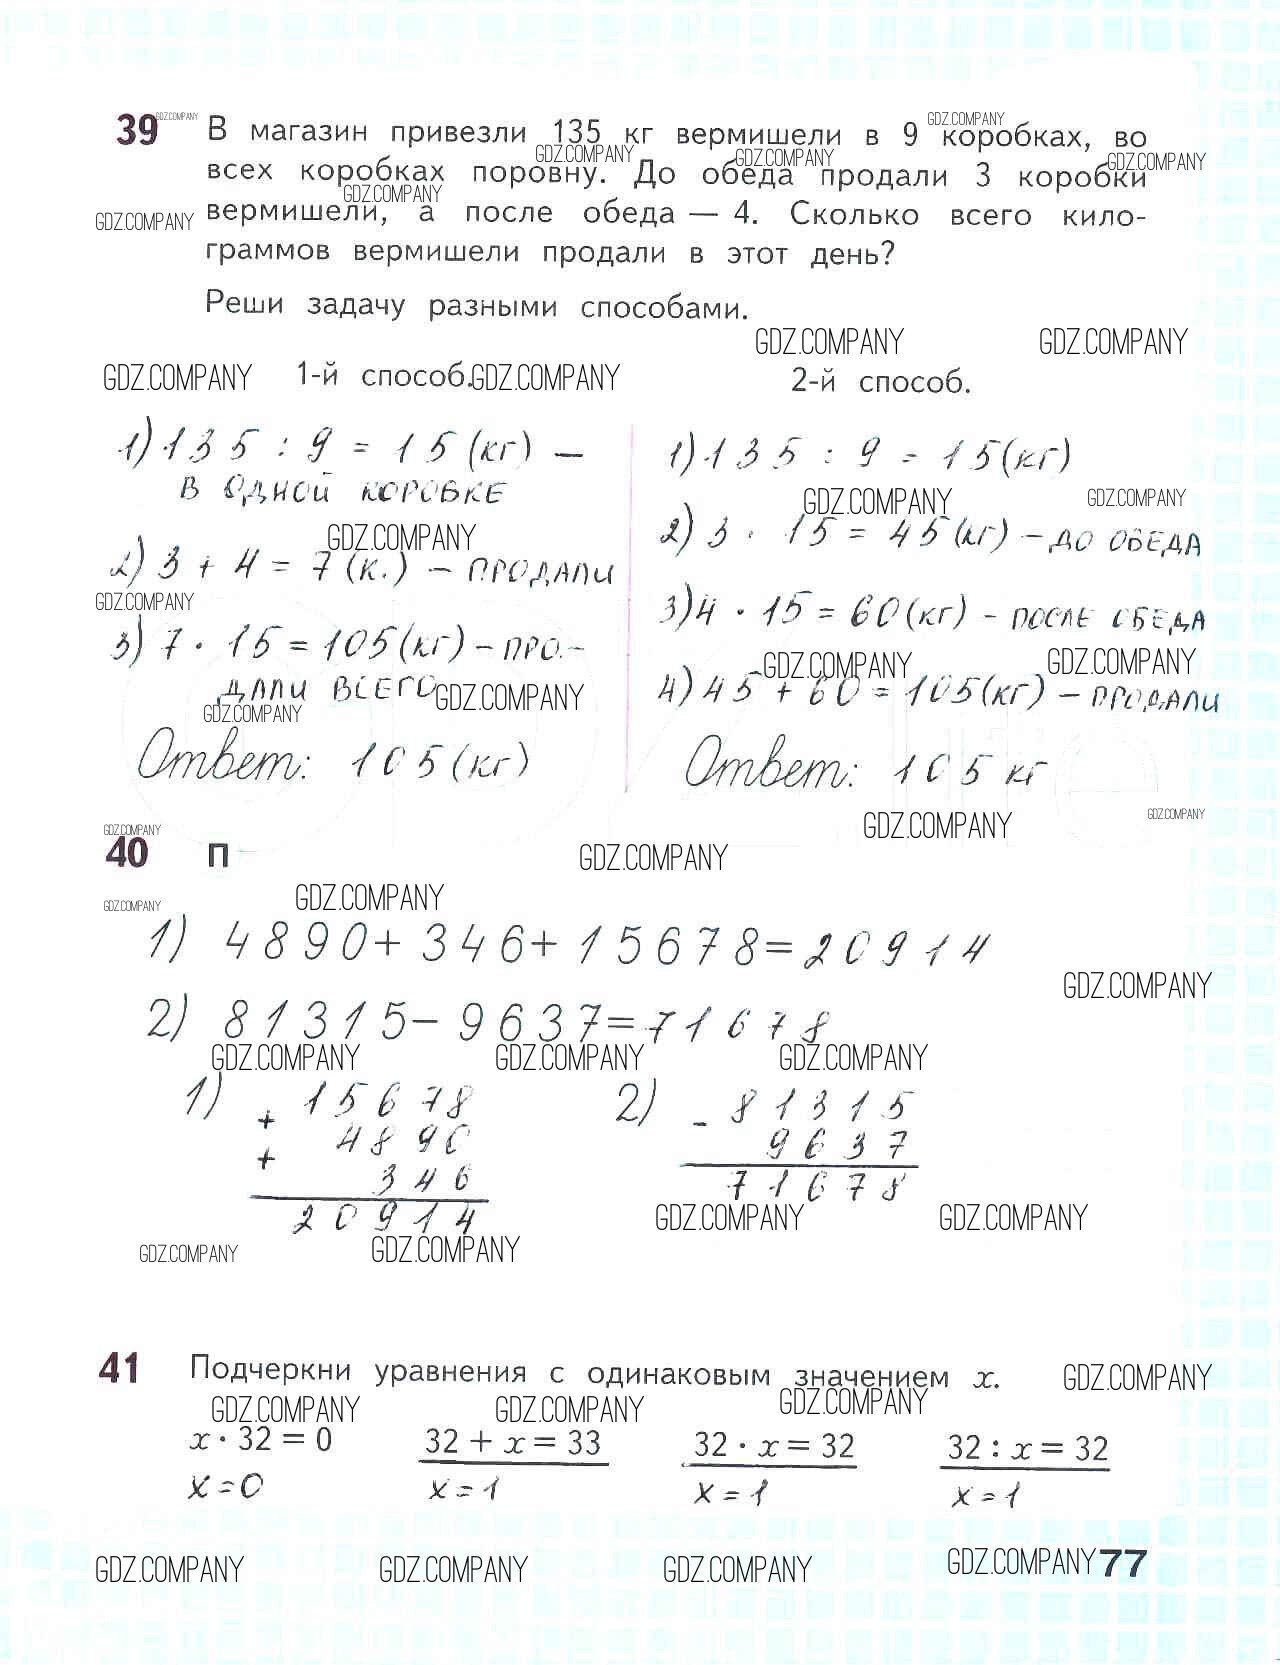 39 В магазин привезли 135 кг вермишели в 9 коробках, во
всех коробках поровну. До обеда продали 3 коробки
вермишели, а после обеда — 4. Сколько всего кило-
граммов вермишели продали в этот день?
Реши задачу разными способами.
1-й способ.
1) 135 : 9 = 15 (кг) —
В ОДНОЙ КОРОБКЕ
2) 3 + 4 = 7 (к.) — ПРОДАЛИ
3) 7 · 15 = 105 (кг) — ПРО-
ДАЛИ ВСЕГО
Ответ: 105 (кг)
2-й способ.
1) 135 : 9 = 15 (кг)
2) 3 · 15 = 45 (кг) — ДО ОБЕДА
3) 4 · 15 = 60 (кг) — ПОСЛЕ ОБЕДА
4) 45 + 60 = 105 (кг) — ПРОДАЛИ
Ответ: 105 кг
40 П
1) 4890 + 346 + 15678 = 20914
2) 81315 − 9637 = 71678
1) + 15678
4890
+
346
20914
2) − 81315
9637
71678
41 Подчеркни уравнения с одинаковым значением x.
x · 32 = 0 32 + x = 33 32 · x = 32 32 : x = 32
x = 0 x = 1 x = 1 x = 1
77
GDZ.COMPANY